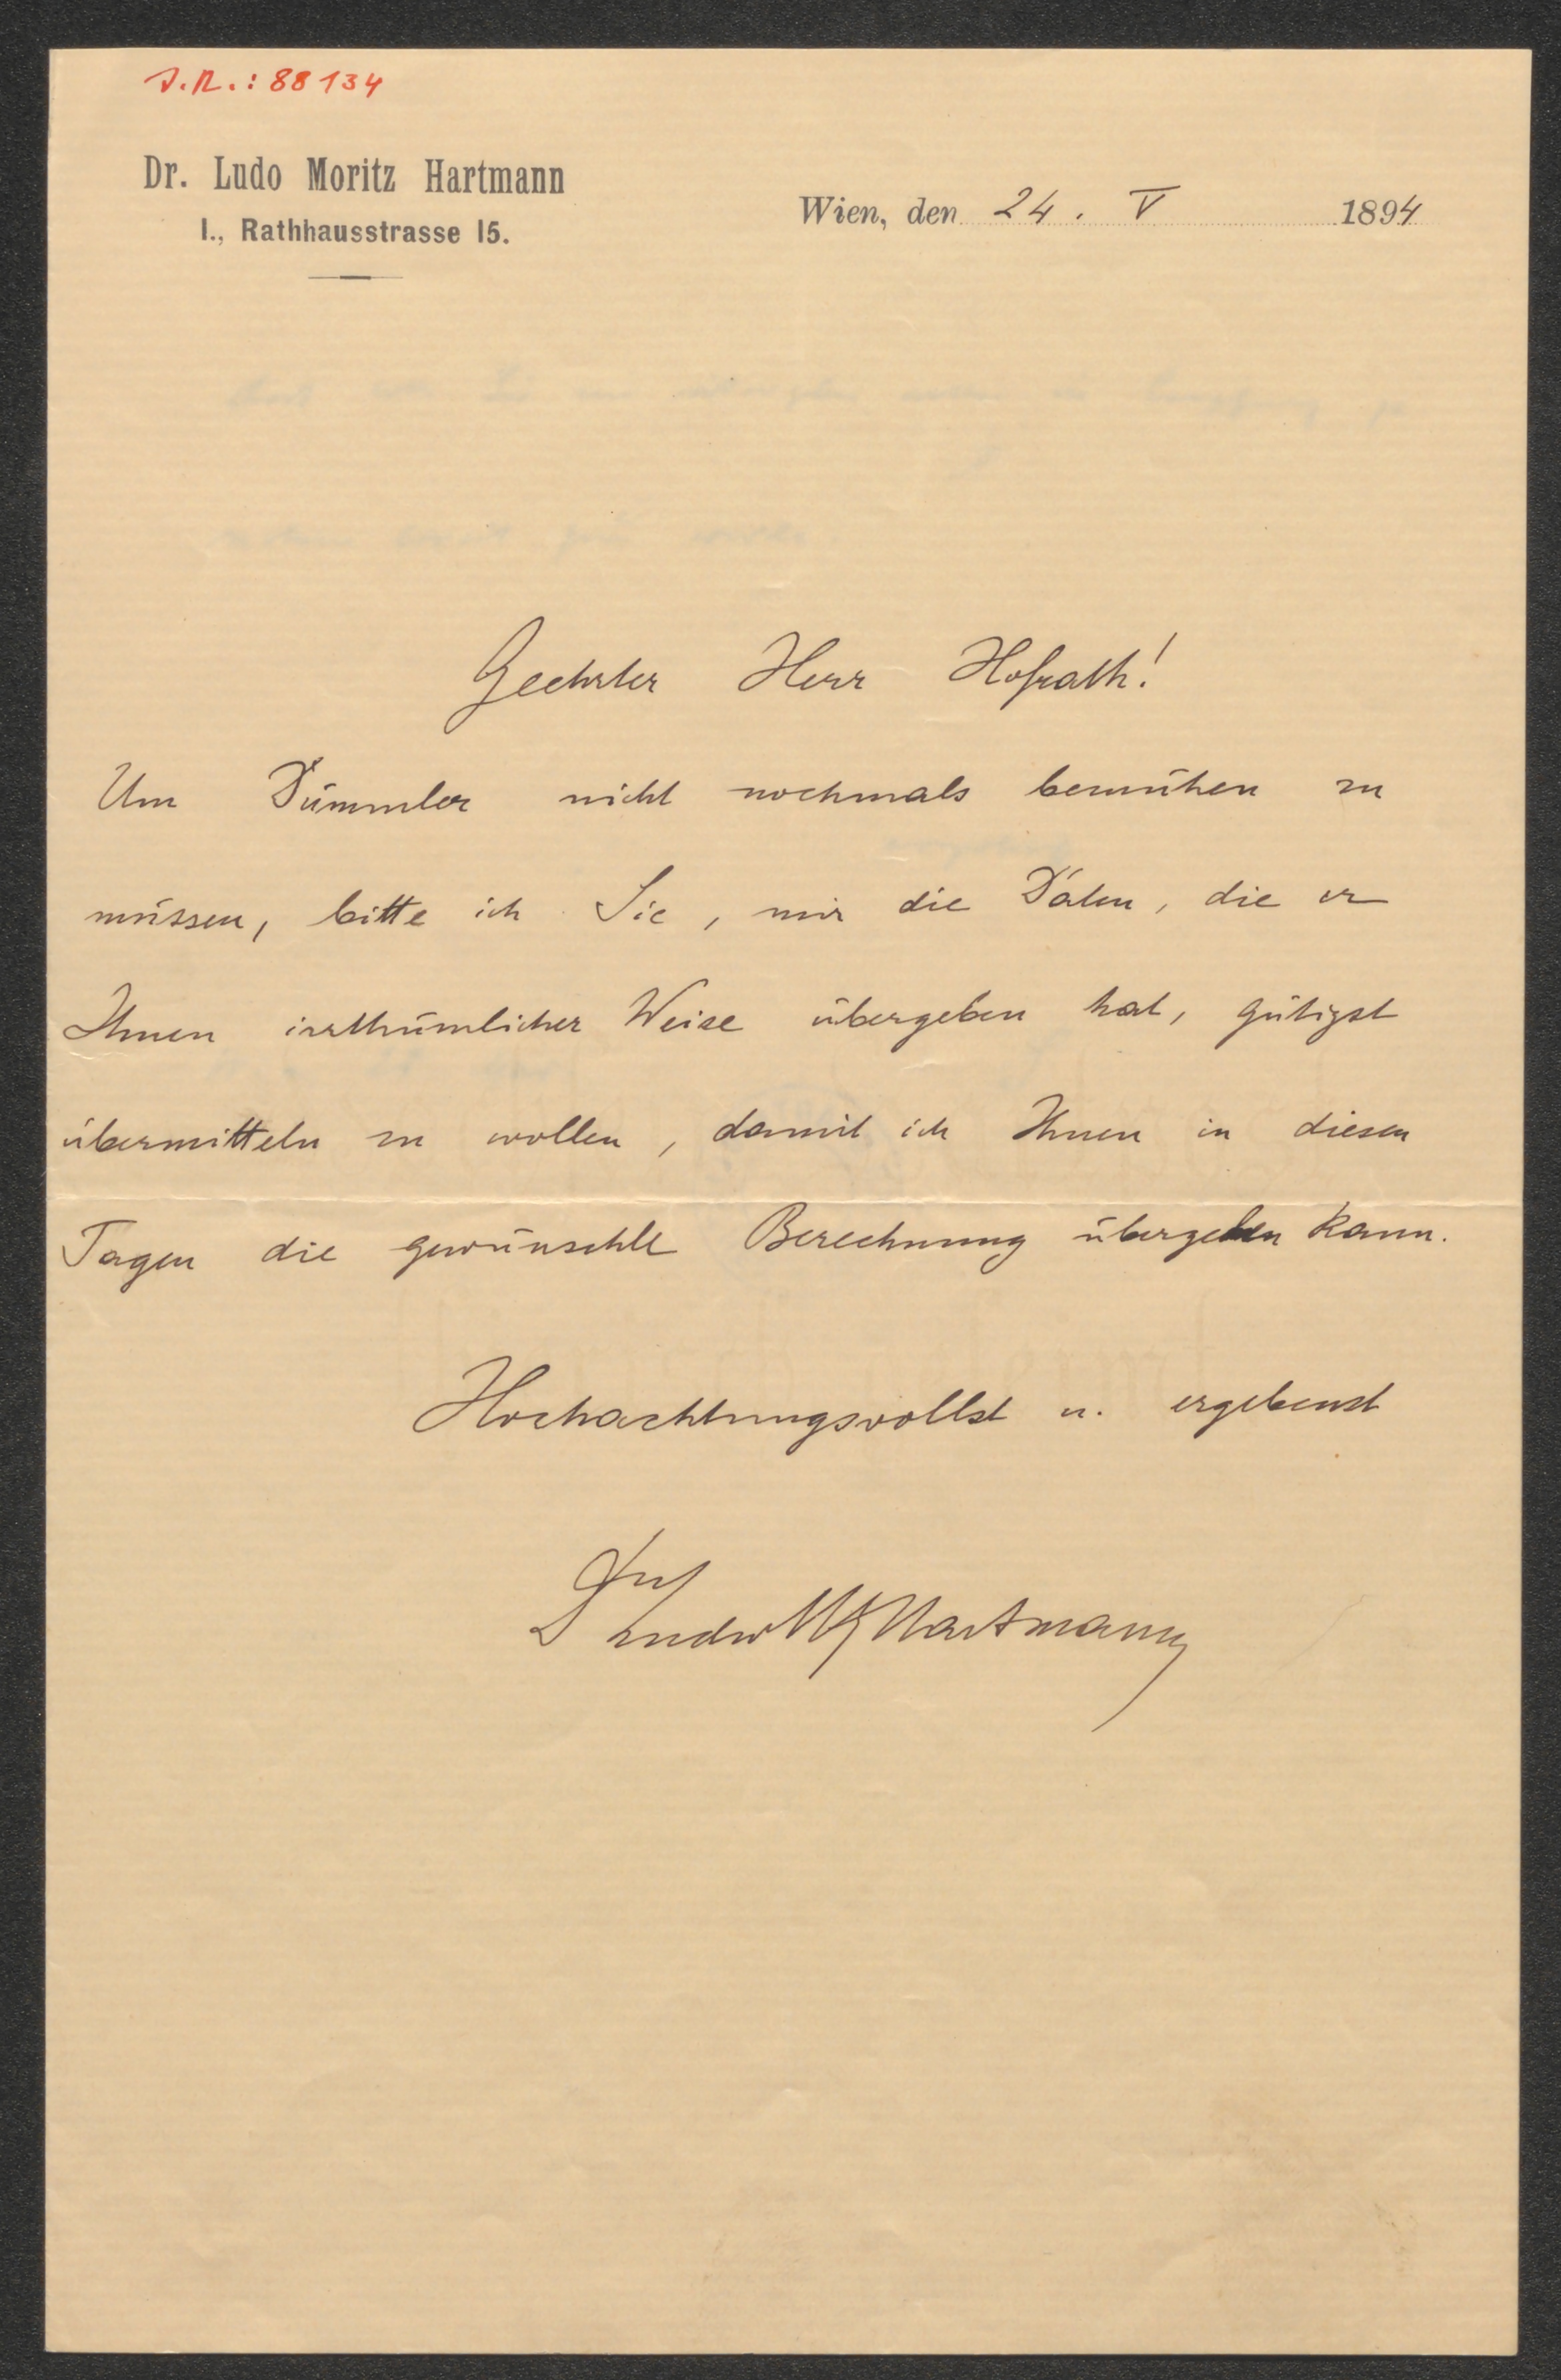 J.N.: 88134
Dr. Ludo Moritz Hartmann
I., Rathhausstrasse 15.
Wien, den 24. V 1894
Geehrter Herr Hofrath!
Um Dümmler nicht nochmals bemühen zu
müssen, bitte ich Sie, mir die Daten, die er
Ihnen irrthümlicher Weise übergeben hat, gütigst
übermitteln zu wollen, damit ich Ihnen in diesen
Tagen die gewünschte Berechnung übergeben kann.
Hochachtungsvollst u. ergebenst
Ludo M Hartmann